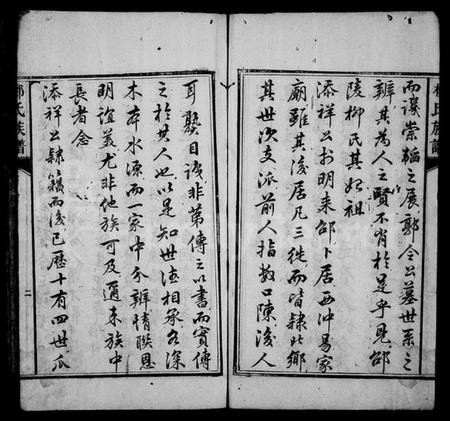 而譏崇韜之展郭令公墓世系之
辨其為人之賢不肖於是乎見邵
陵柳氏其始祖
添祥公於明來邵卜居西沖易家
廟雖其後居凡三徙而皆隸此鄉
其世次支派前人指數口陳後人
耳目非第傳之以書而實傳
之於其人也以是知世德相承各深
木本水源而一家中分辨情聯恩
明誼美尤非他族可及邇來族中
長者念
添祥公隸籍而後已歷十有四世瓜
氏族譜
二